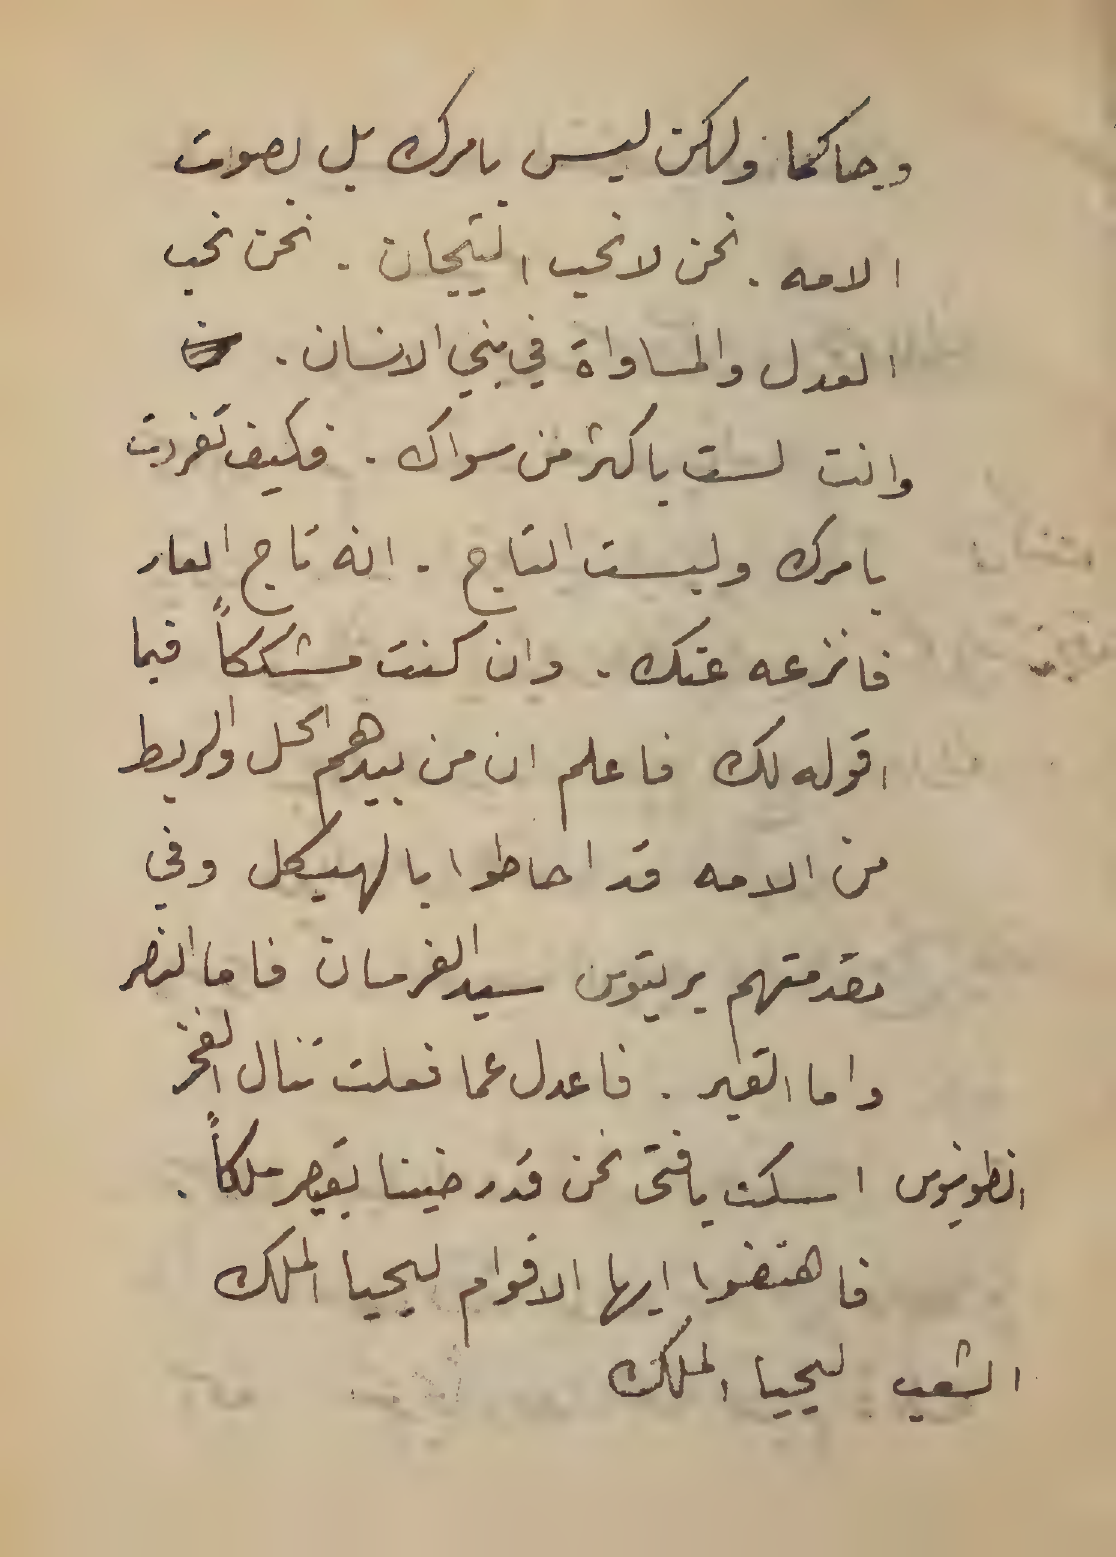 وحاكما ولكن ليس بامرك بل بصوت
الامه . نحن لا نحب التيجان . نحن نحب
العدل والمساواة في بني الانسان .
وانت لست باكثر من سواك . فكيف تفردت
بامرك ولبست التاج . انه تاج العار
فانزعه عنك . وان كنت مشككاً فيما
اقوله لك فاعلم ان من بيدهم الحل والربط
من الامه قد احاطوا بالهيكل وفي
مقدمتهم بريتوس سيد الفرسان فاما النصر
واما القبر . فاعدل عما فعلت تنال الفخر
انطونيوس اسكت يا فتى نحن قد رضينا بقيصر ملكاً .
فاهتفوا ايها الاقوام ليحيا الملك
الشعب ليحيا الملك